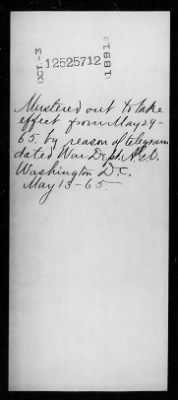 OCT.-3
12525712
1891
Mustered out to take
effect from May 29-
65. by reason of telegram
dated War Dept. A.G.O.
Washington D.C.
May 13-65.